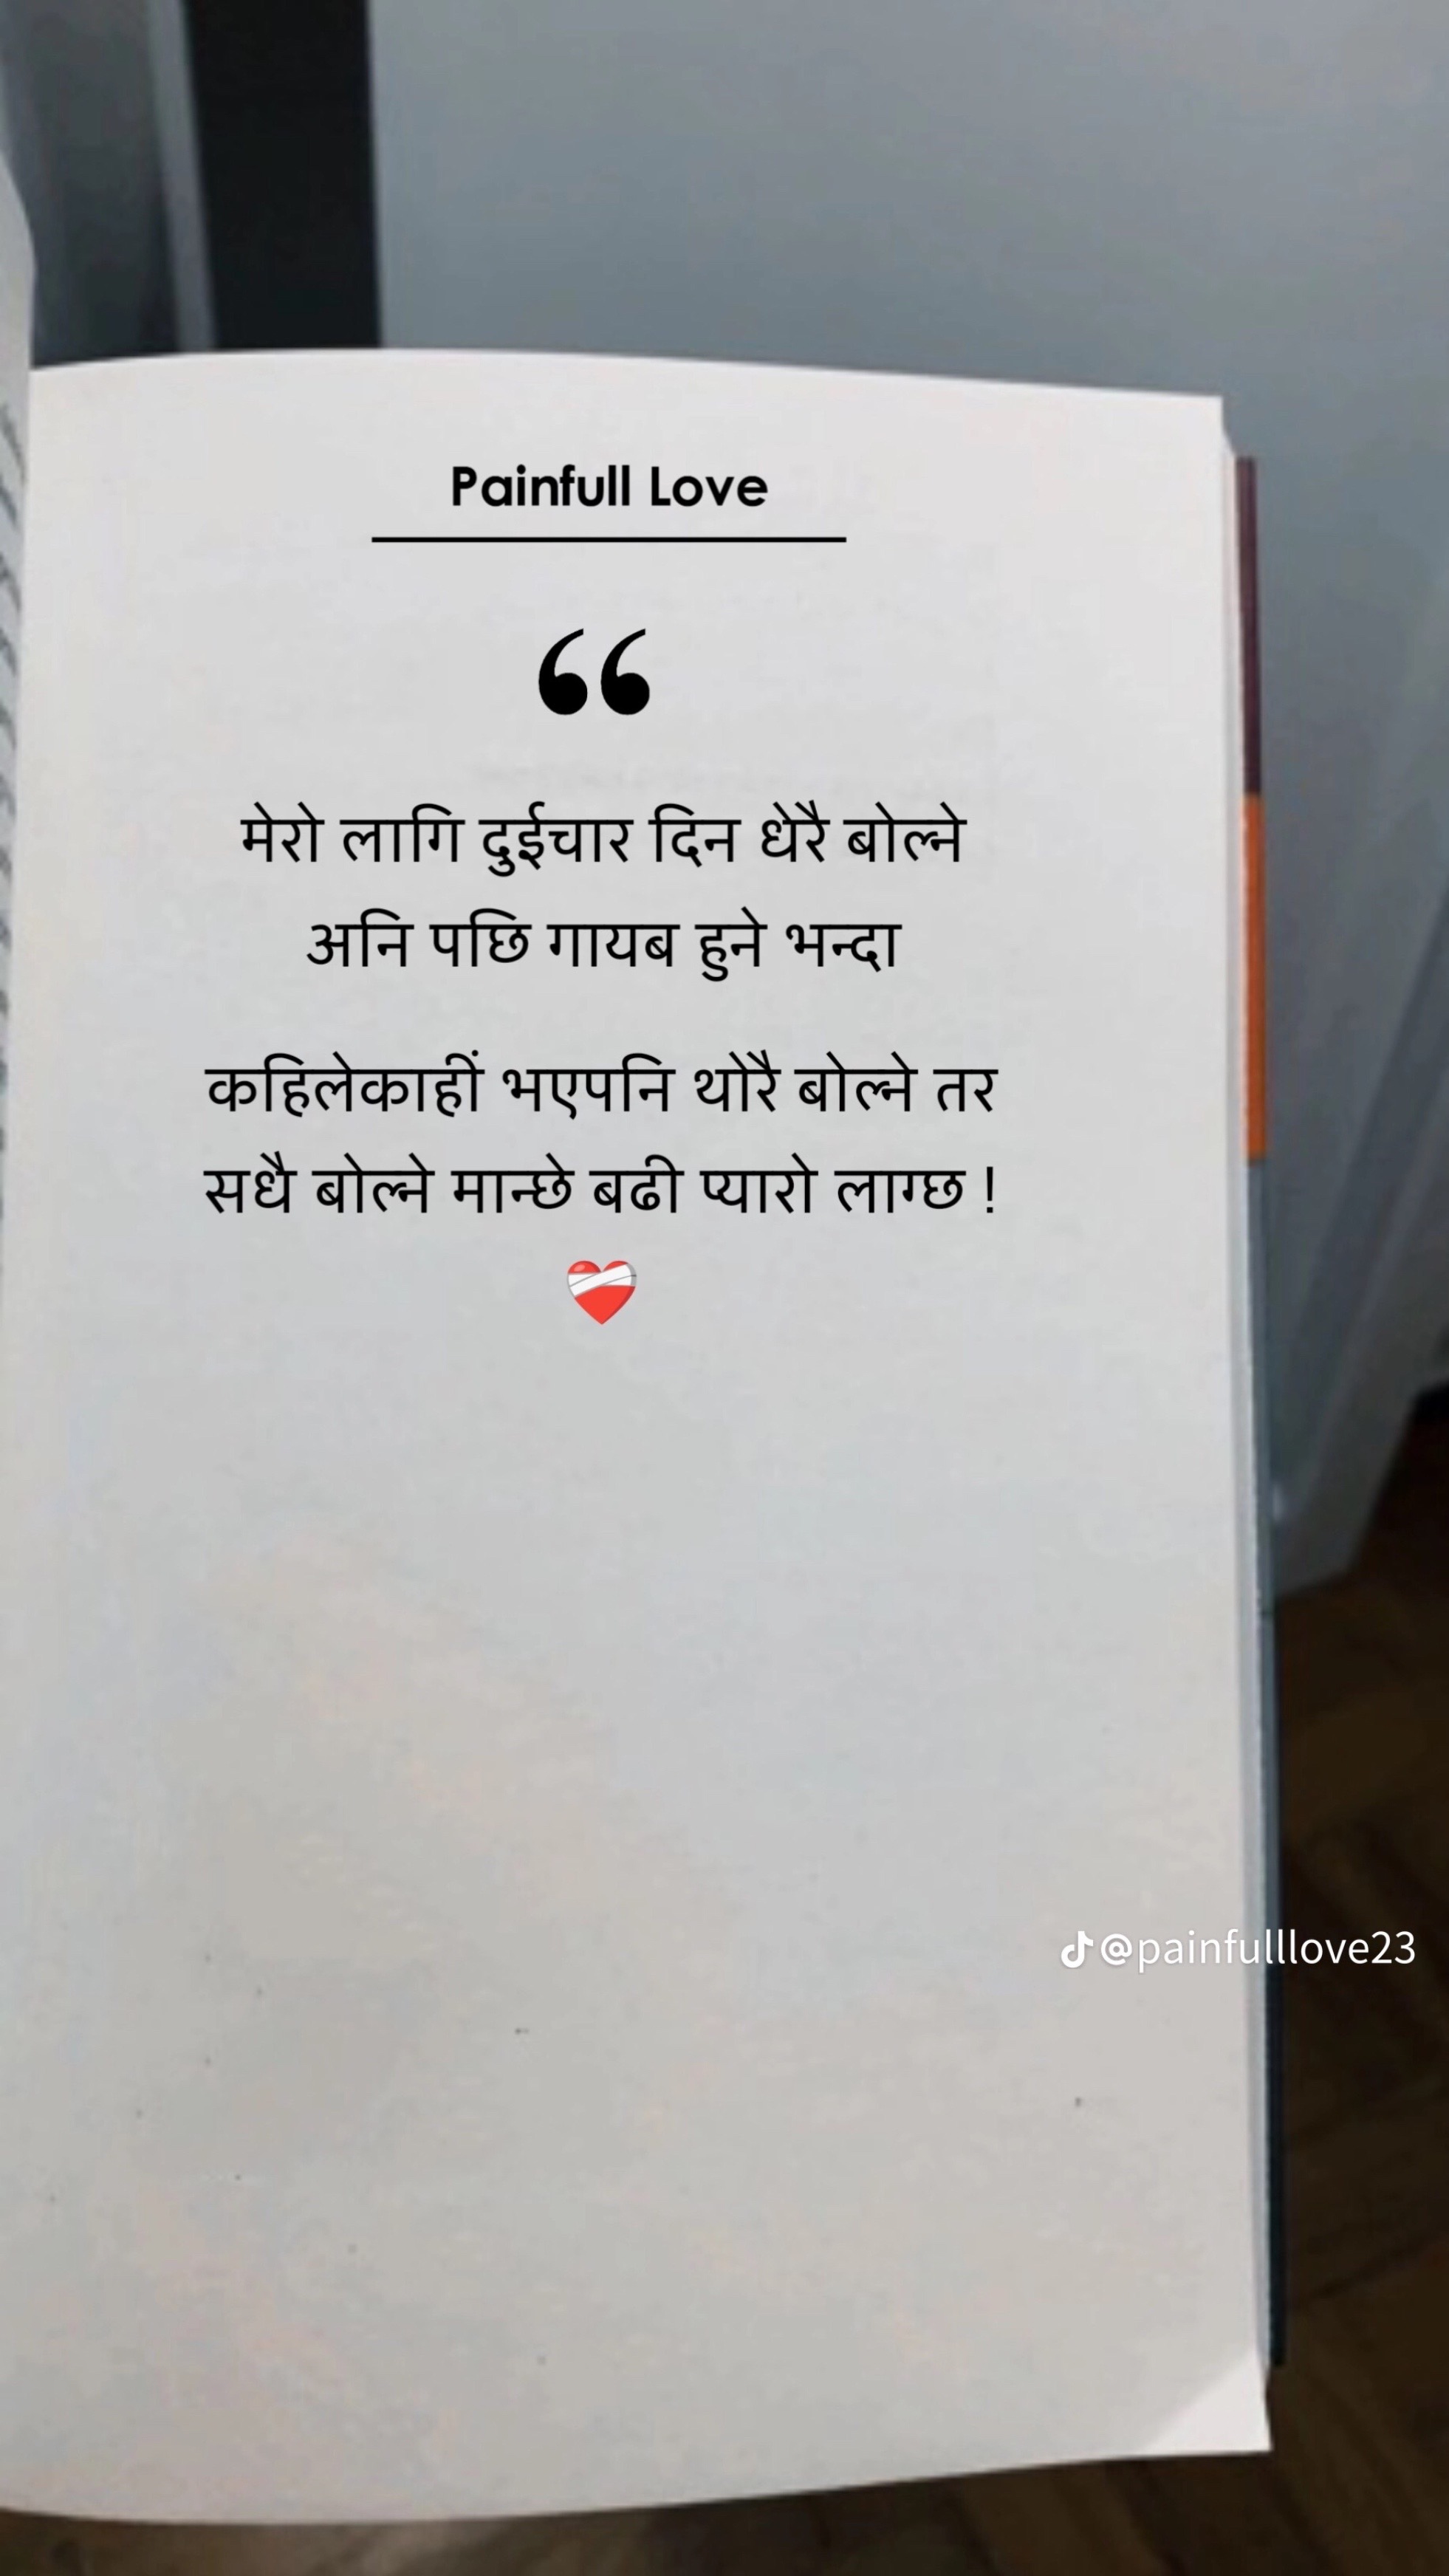 Painfull Love
“
मेरो लागि दुईचार दिन धेरै बोल्ने
अनि पछि गायब हुने भन्दा
कहिलेकाहीं भएपनि थोरै बोल्ने तर
सधै बोल्ने मान्छे बढी प्यारो लाग्छ !
❤️‍🩹
@painfulllove23